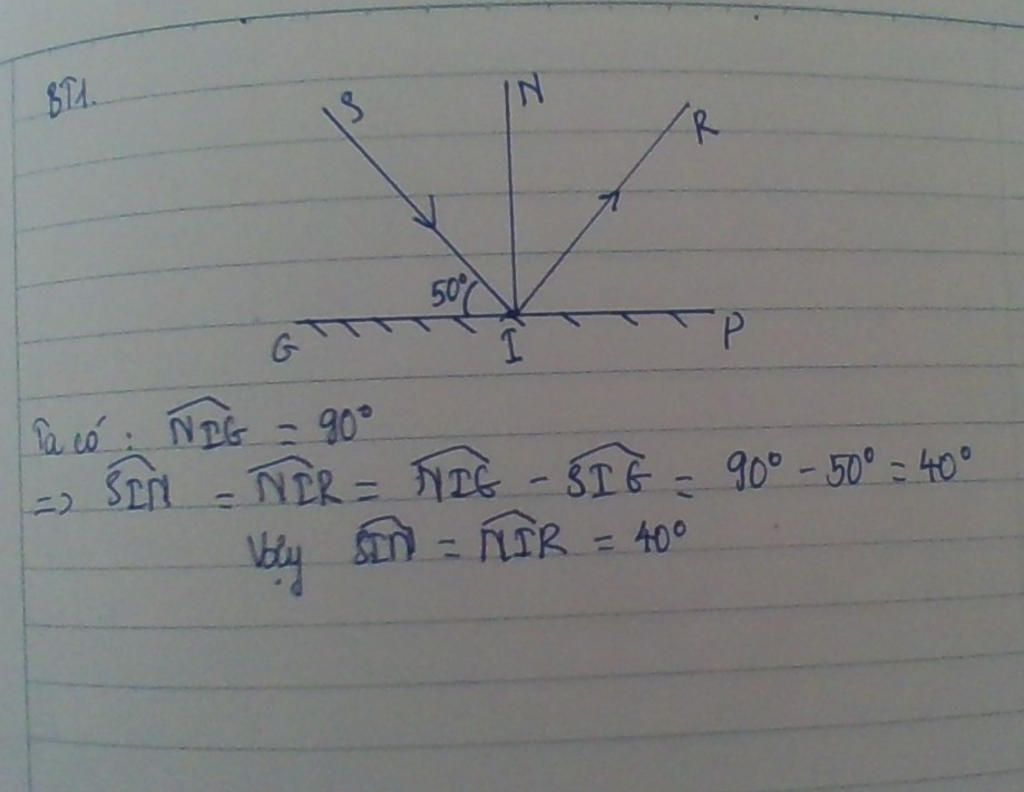 BT1.
S
N
R
50°
G
I
P
Ta có: \widehat{NIG} = 90°
=> \widehat{SIN} = \widehat{NIR} = \widehat{NIG} - \widehat{SIG} = 90° - 50° = 40°
Vậy \widehat{SIN} = \widehat{NIR} = 40°